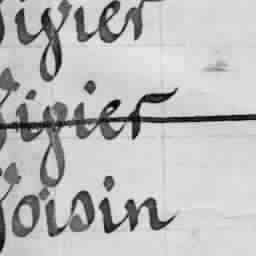 Vigier
Vigier
Voisin